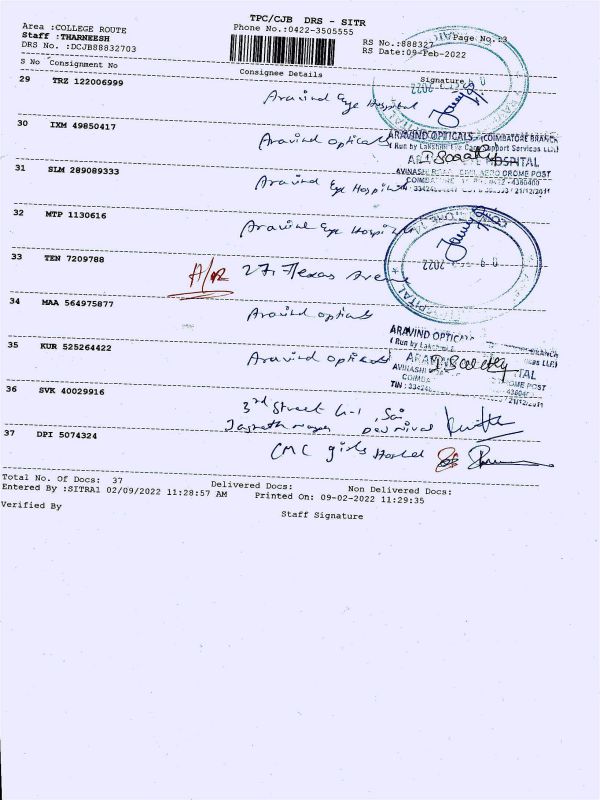 TPC/CJB DRS - SITR
Area :COLLEGE ROUTE
Phone No.:0422-3505555
Page No.:3
Staff :THARNEESH
RS No.:888327
DRS No. :DCJB88832703
RS Date:09-Feb-2022
S No Consignment No
Consignee Details
Signature
29 TRZ 122006999
Aravind Eye Hospital
30 IXM 49850417
Aravind opticals
ARAVIND OPTICALS - (COIMBATORE BRANCH
( Run by Lakshmi Eye Care Support Services LLP)
31 SLM 289089333
Aravind Eye Hospital
HOSPITAL
AVINASHI AERO DROME POST
32 MTP 1130616
Aravind Eye Hospital
33 TEN 7209788
A/R 27, Texas Avenue
34 MAA 564975877
Aravind opticals
ARAVIND OPTICALS
BRANCH
( Run by Lakshmi
35 KUR 525264422
Aravind opticals
AVINASHI
DROME POST
TIN :
21/12/2011
36 SVK 40029916
3rd Street Sai
Nagar
37 DPI 5074324
CMC girls Hostel
Total No. Of Docs: 37
Delivered Docs:
Non Delivered Docs:
Entered By :SITRA1 02/09/2022 11:28:57 AM
Printed On: 09-02-2022 11:29:35
Verified By
Staff Signature